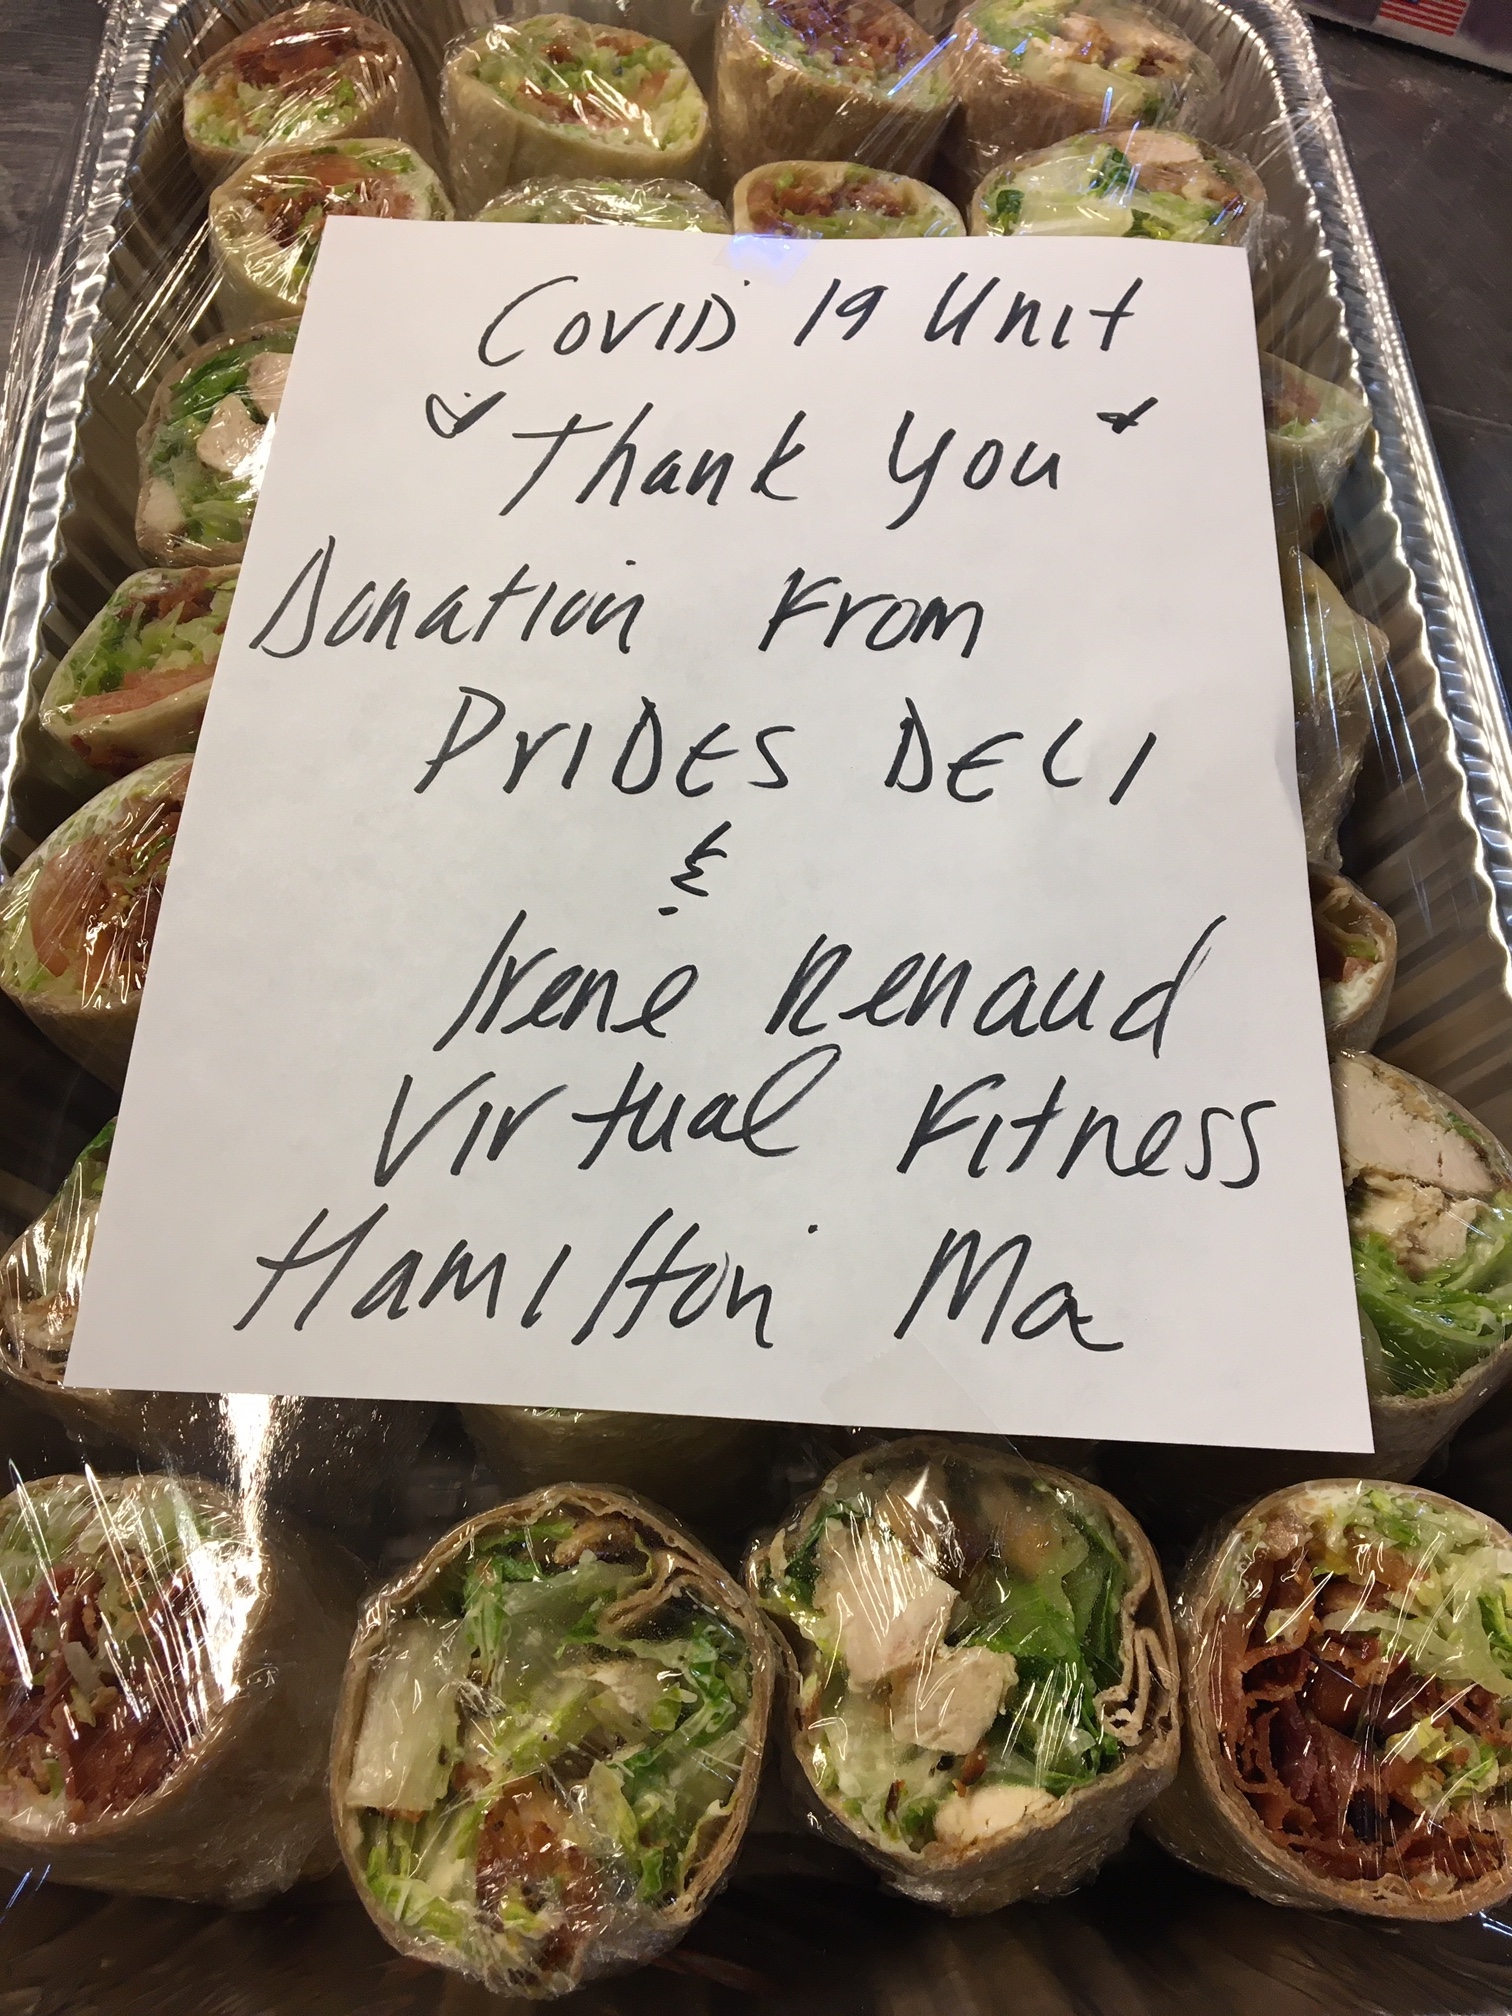 COVID 19 Unit
Thank You
Donation From
PrIDES DELI
&
Irene Renaud
Virtual Fitness
Hamilton Ma